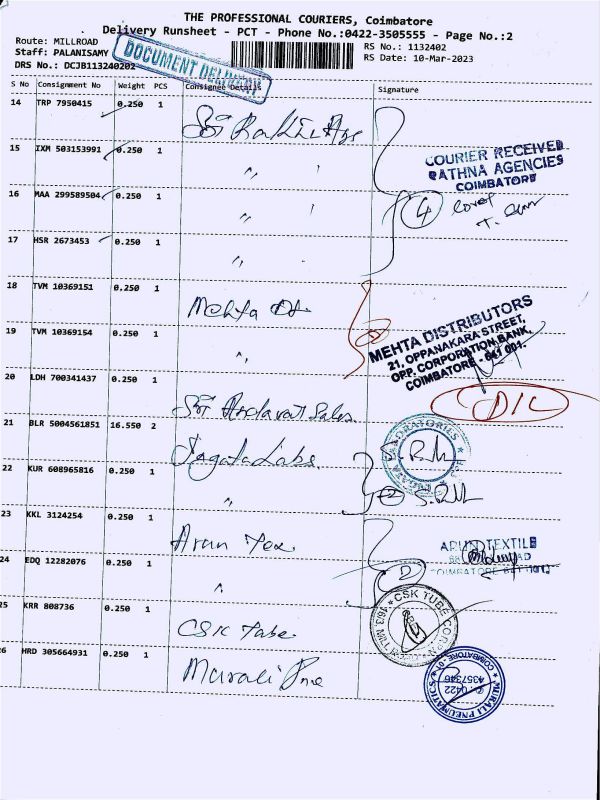 THE PROFESSIONAL COURIERS, Coimbatore
Delivery Runsheet - PCT - Phone No.:0422-3505555 - Page No.:2
Route: MILLROAD
RS No.: 1132402
Staff: PALANISAMY
RS Date: 10-Mar-2023
DRS No.: DCJB113240202
DOCUMENT DELIVERY
S No Consignment No Weight PCS Consignee Details Signature
14 TRP 7950415 0.250 1
15 IXM 503153991 0.250 1 "
COURIER RECEIVED
RATHNA AGENCIES
COIMBATORE
16 MAA 299589504 0.250 1 "
4 cover
17 HSR 2673453 0.250 1 "
18 TVM 10369151 0.250 1 Mehta Dt
19 TVM 10369154 0.250 1 "
MEHTA DISTRIBUTORS
21, OPPANAKARA STREET,
OPP. CORPORATION BANK,
COIMBATORE - 641 001.
20 LDH 700341437 0.250 1 Sri Andavar Sales
D/L
21 BLR 5004561851 16.550 2 Jagata Labs
22 KUR 608965816 0.250 1 "
23 KKL 3124254 0.250 1 Arun Tex
ARUN TEXTILE
24 EDQ 12282076 0.250 1 "
2
25 KRR 808736 0.250 1 CSK Tube
CSK TUBE CORPN
26 HRD 305664931 0.250 1 Murali Pne
MURALI PNEUMATICS
COIMBATORE
0422
4357346